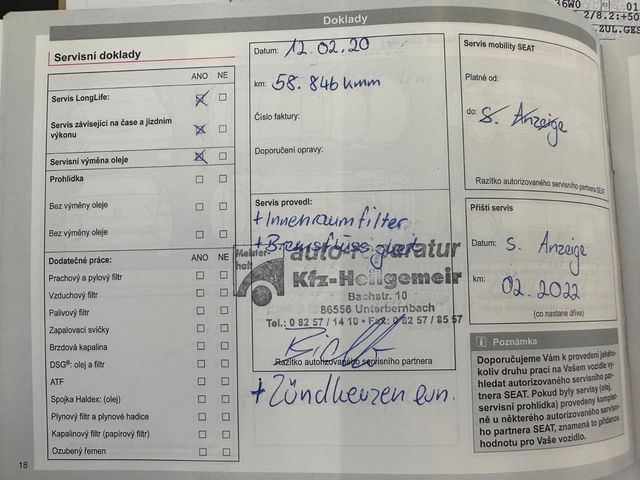 36W0
01
2/8.2:+50
ZUL.GES
Doklady
Servisní doklady
ANO NE
Servis LongLife:
Servis závisející na čase a jízdním
výkonu
Servisní výměna oleje
Prohlídka
Bez výměny oleje
Bez výměny oleje
Dodatečné práce: ANO NE
Prachový a pylový filtr
Vzduchový filtr
Palivový filtr
Zapalovací svíčky
Brzdová kapalina
DSG®: olej a filtr
ATF
Spojka Haldex: (olej)
Plynový filtr a plynové hadice
Kapalinový filtr (papírový filtr)
Ozubený řemen
18
Datum: 12.02.20
km: 58.846 kmm
Číslo faktury:
Doporučení opravy:
Servis provedl:
+ Innenraumfilter
+ Bremsflüssigkeit
Meister-
haft
auto-reparatur
Kfz-Heiligemeir
Bachstr. 10
86556 Unterbernbach
Tel.: 0 82 57 / 14 10 • Fax: 0 82 57 / 85 57
Razítko autorizovaného servisního partnera
+ Zündkerzen ern.
Servis mobility SEAT
Platné od:
do: s. Anzeige
Razítko autorizovaného servisního partnera SEAT
Příští servis
Datum: s. Anzeige
km: 02.2022
(co nastane dříve)
i Poznámka
Doporučujeme Vám k provedení jakého-
koliv druhu prací na Vašem vozidle vy-
hledat autorizovaného servisního par-
tnera SEAT. Pokud byly servisy (olej,
servisní prohlídka) provedeny komplet-
ně u některého autorizovaného servisní-
ho partnera SEAT, znamená to přidanou
hodnotu pro Vaše vozidlo.